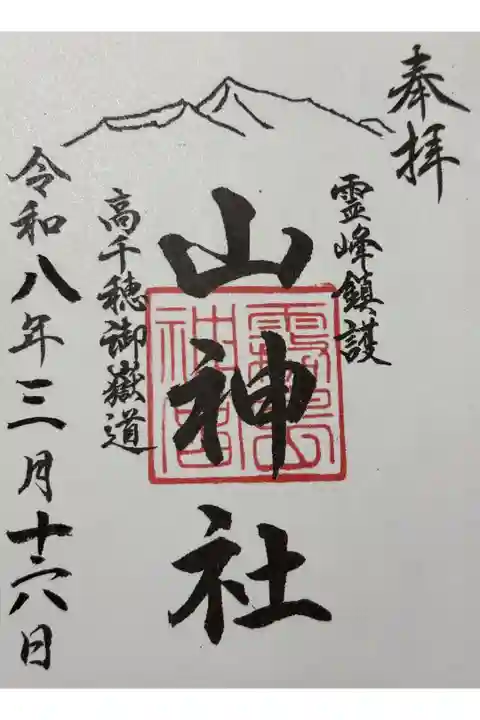 奉拝
霊峰鎮護
山神社
霧島神宮
高千穂御嶽道
令和八年三月十六日